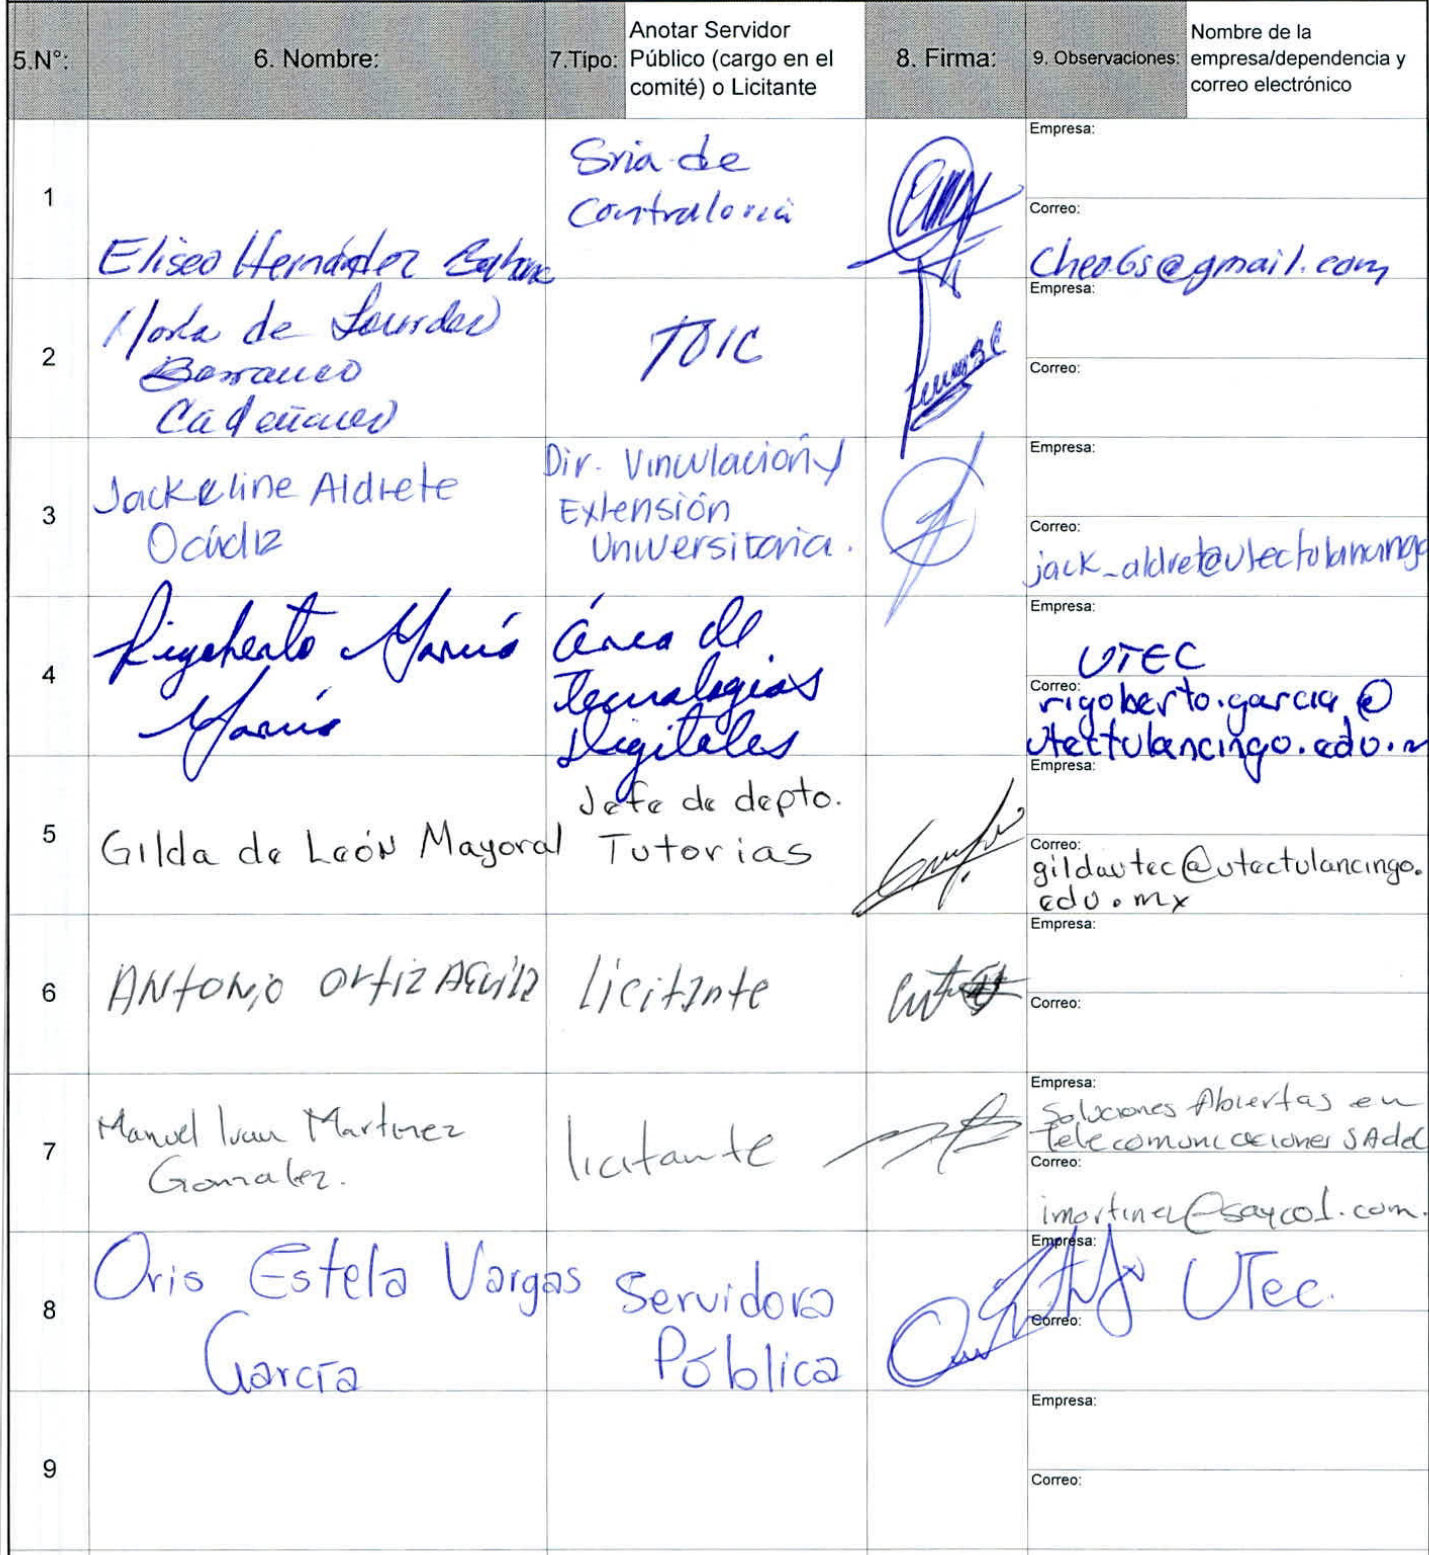 5.N°:
6. Nombre:
7.Tipo:
Anotar Servidor
Público (cargo en el
comité) o Licitante
8. Firma:
9. Observaciones:
Nombre de la
empresa/dependencia y
correo electrónico
1
Eliseo Hernández
Sria de
Contraloria
Empresa:
Correo:
Cheo.6s@gmail.com
2
de Lourdes
Barranco
TOIC
Empresa:
Correo:
3
Jackeline Aldrete
Ocádiz
Dir. Vinculación y
Extensión
Universitaria.
Empresa:
Correo:
jack_aldret@utectulancingo
4
Rigoberto
Área de
Tecnologías
Digitales
Empresa:
UTEC
Correo:
rigoberto.garcia@
utectulancingo.edu.m
5
Gilda de León Mayoral
Jefe de depto.
Tutorias
Empresa:
Correo:
gildautec@utectulancingo.
edu.mx
6
ANtONiO OrtiZ AGUilA
licitante
Empresa:
Correo:
7
Manuel Ivan Martinez
Gonzalez.
licitante
Empresa:
Soluciones Abiertas en
Telecomunicaciones SAdeC
Correo:
imartinez@saycol.com.
8
Oris Estela Vargas
García
Servidora
Pública
Empresa:
UTec.
Correo:
9
Empresa:
Correo: